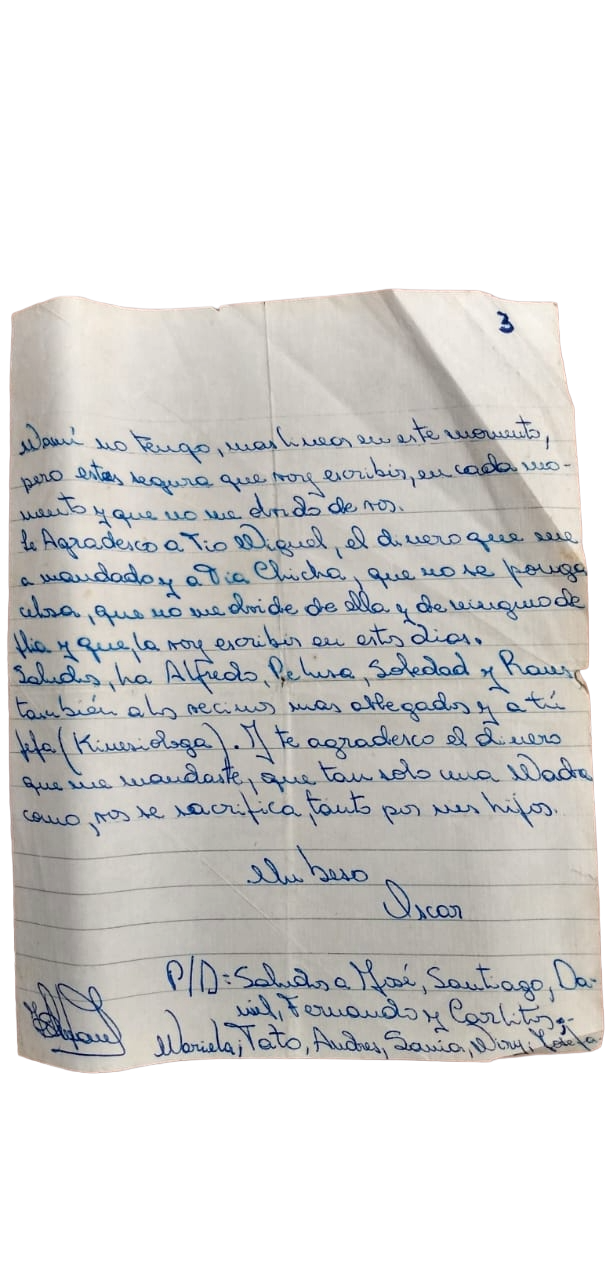 3
Mamí no tengo, mas lineas en este momento,
pero estes segura que voy escribir, en cada mo-
mento y que no me olvido de vos.
le Agradesco a Tio Miguel, el dinero que me
a mandado y a Tia Chicha, que no se ponga
celosa, que no me olvide de ella y de ninguno de
flia y que, la voy escribir en estos dias.
Saludos, ha Alfredo, Pelusa, Soledad y
también a los vecinos mas allegados y a tú
Jefa (Kinesiologa). Y te agradesco el dinero
que me mandaste, que tan solo una Madre
como, vos se sacrifica, tanto por sus hijos.
Un beso
Oscar
P/D: Saludos a José, Santiago, Da-
niel, Fernando y Carlitos,-
Mariela, Tato, Andres, Sonia,